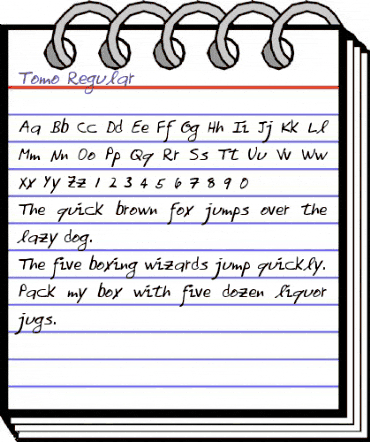 Tomo Regular
Aa Bb Cc Dd Ee Ff Gg Hh Ii Jj Kk Ll
Mm Nn Oo Pp Qq Rr Ss Tt Uu Vv Ww
Xx Yy Zz 1 2 3 4 5 6 7 8 9 0
The quick brown fox jumps over the
lazy dog.
The five boxing wizards jump quickly.
Pack my box with five dozen liquor
jugs.